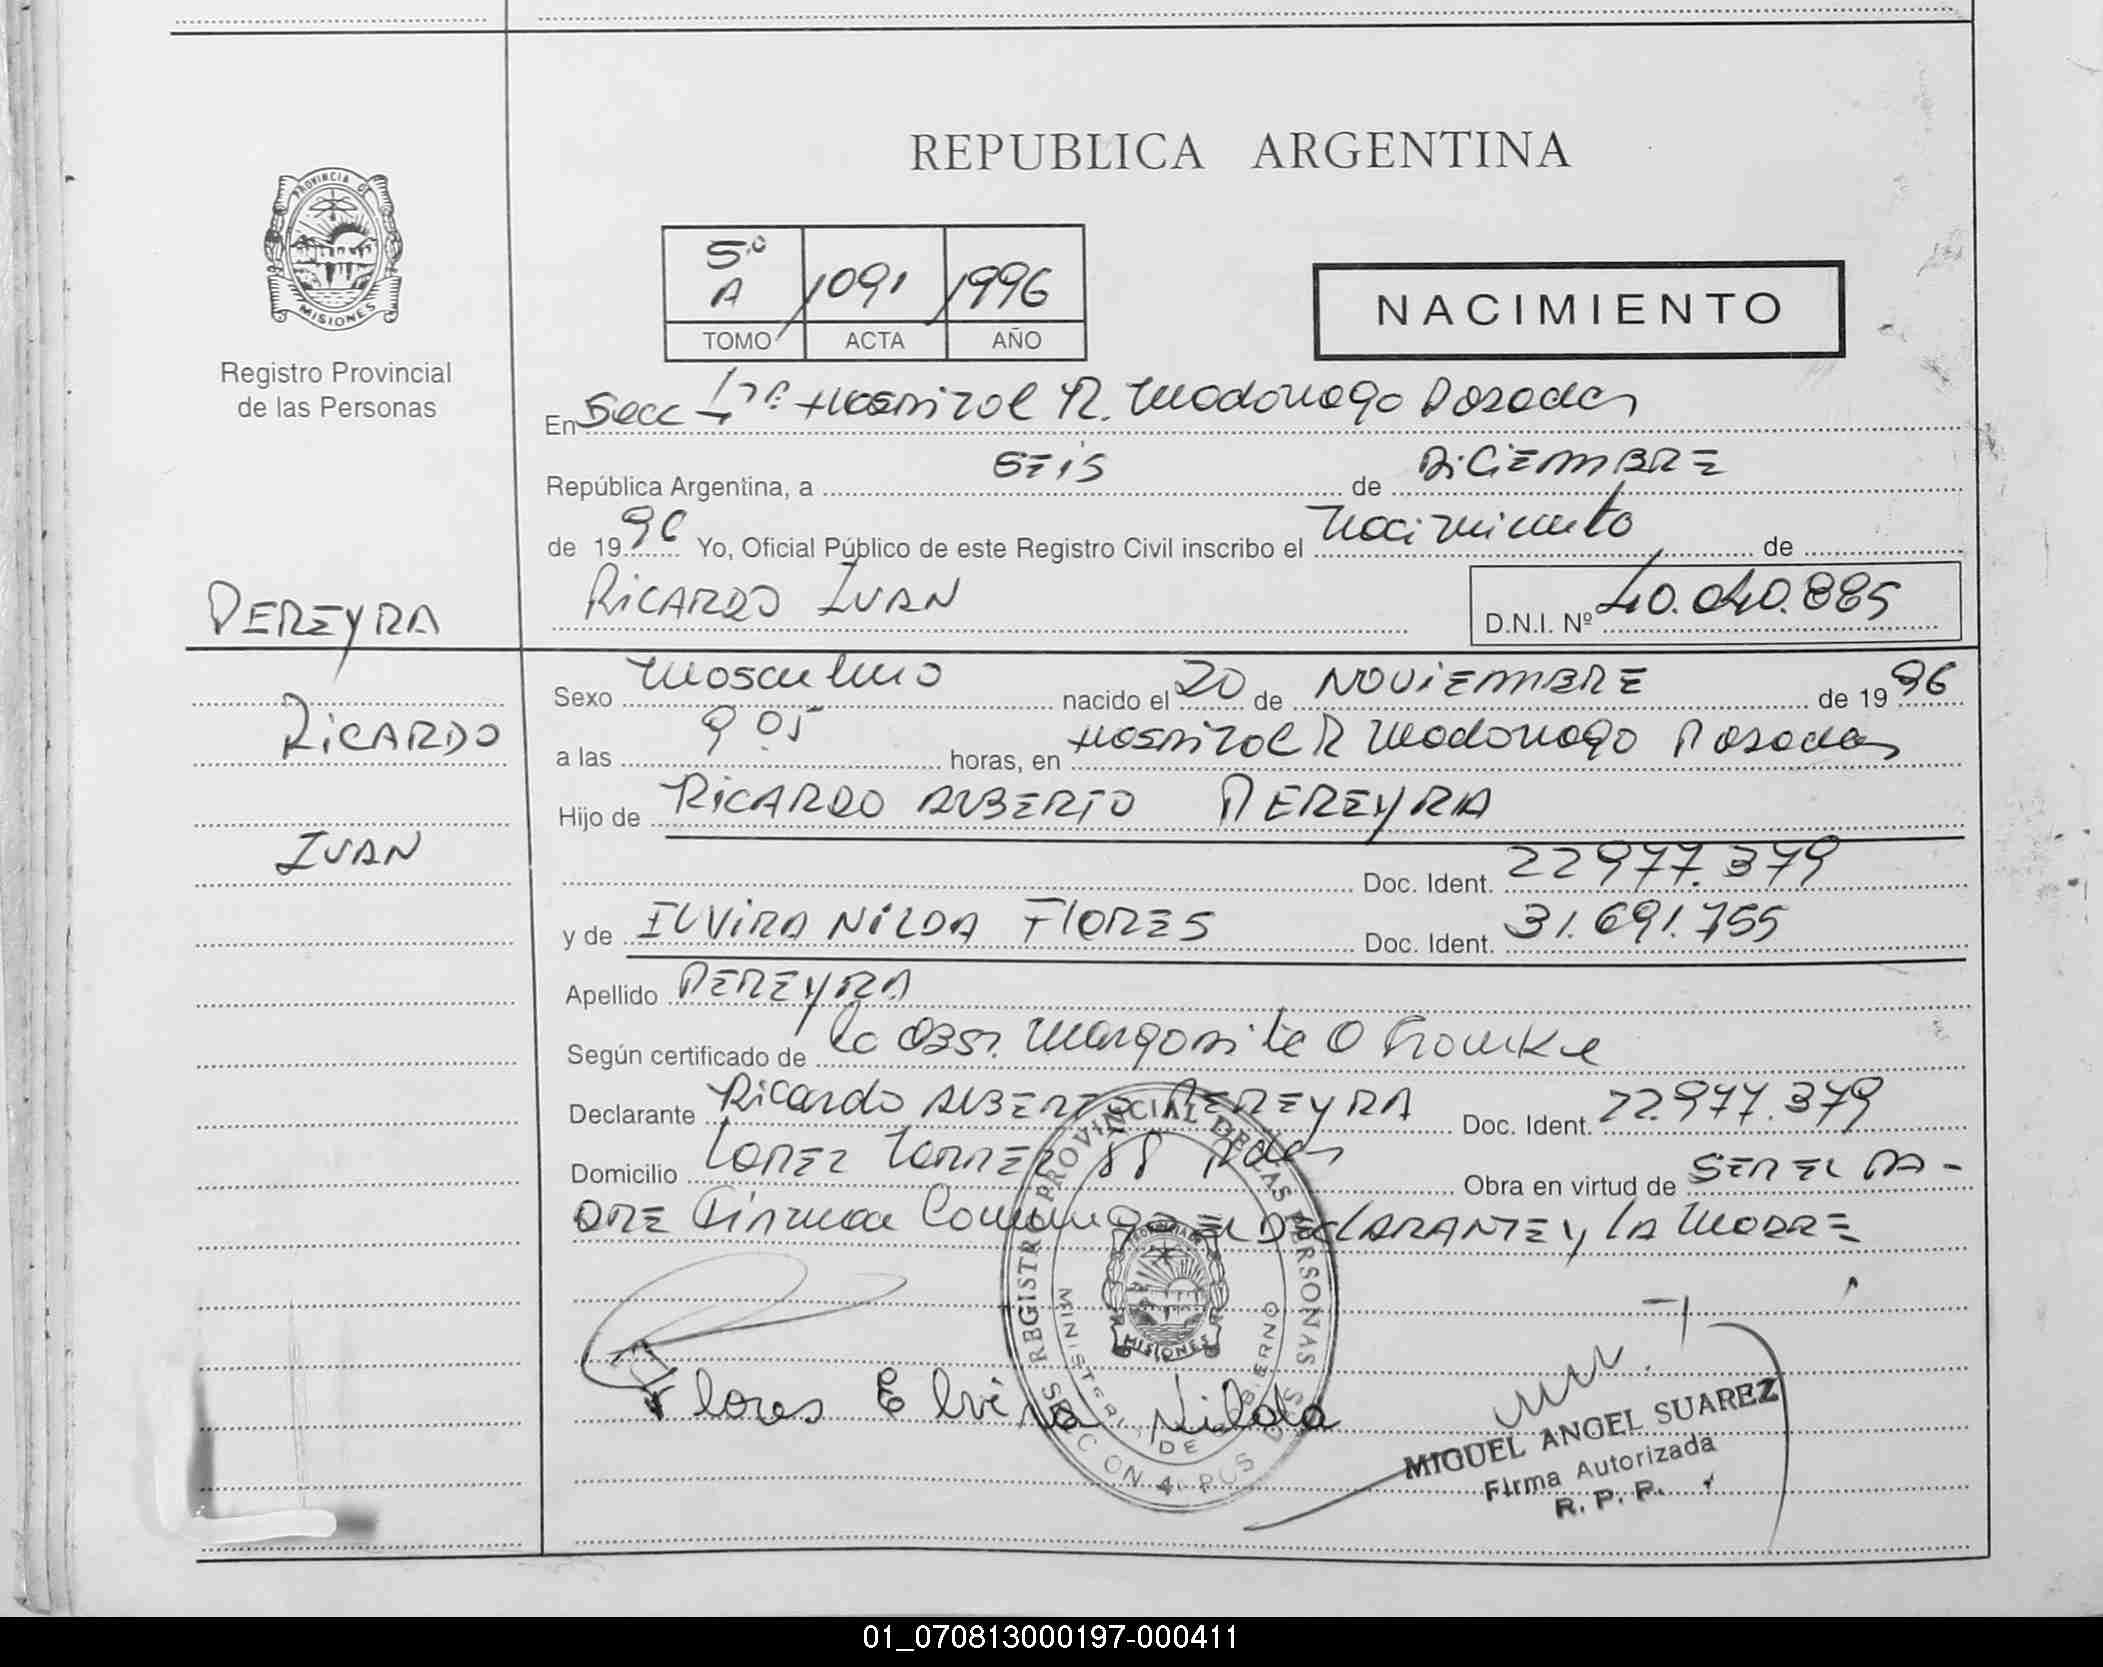 REPUBLICA ARGENTINA
PROVINCIA DE
MISIONES
Registro Provincial
de las Personas
5.º
A 1091 1996
TOMO ACTA AÑO
NACIMIENTO
En Secc 1ra Hospital R. Madariaga Posadas
República Argentina, a SEIS de DICIEMBRE
de 1996 Yo, Oficial Público de este Registro Civil inscribo el Nacimiento de
RICARDO IVAN D.N.I. Nº 40.040.885
PEREYRA
RICARDO
IVAN
Sexo Masculino nacido el 20 de NOVIEMBRE de 1996
a las 9 05 horas, en Hospital R Madariaga Posadas
Hijo de RICARDO ALBERTO PEREYRA
Doc. Ident. 22977.379
y de ELVIRA NILDA FLORES Doc. Ident. 31.691.755
Apellido PEREYRA
Según certificado de la OBST. Margarita O
Declarante Ricardo ALBERTO PEREYRA Doc. Ident. 22.977.379
Domicilio LOPEZ TORRES 88 Pdas Obra en virtud de SER EL PA-
DRE Firman Conmigo EL DECLARANTE y LA MADRE
Flores Elvira Nilda
REGISTRO PROVINCIAL DE LAS PERSONAS
MINISTERIO DE GOBIERNO
MISIONES
MIGUEL ANGEL SUAREZ
Firma Autorizada
R. P. P.
01_070813000197-000411